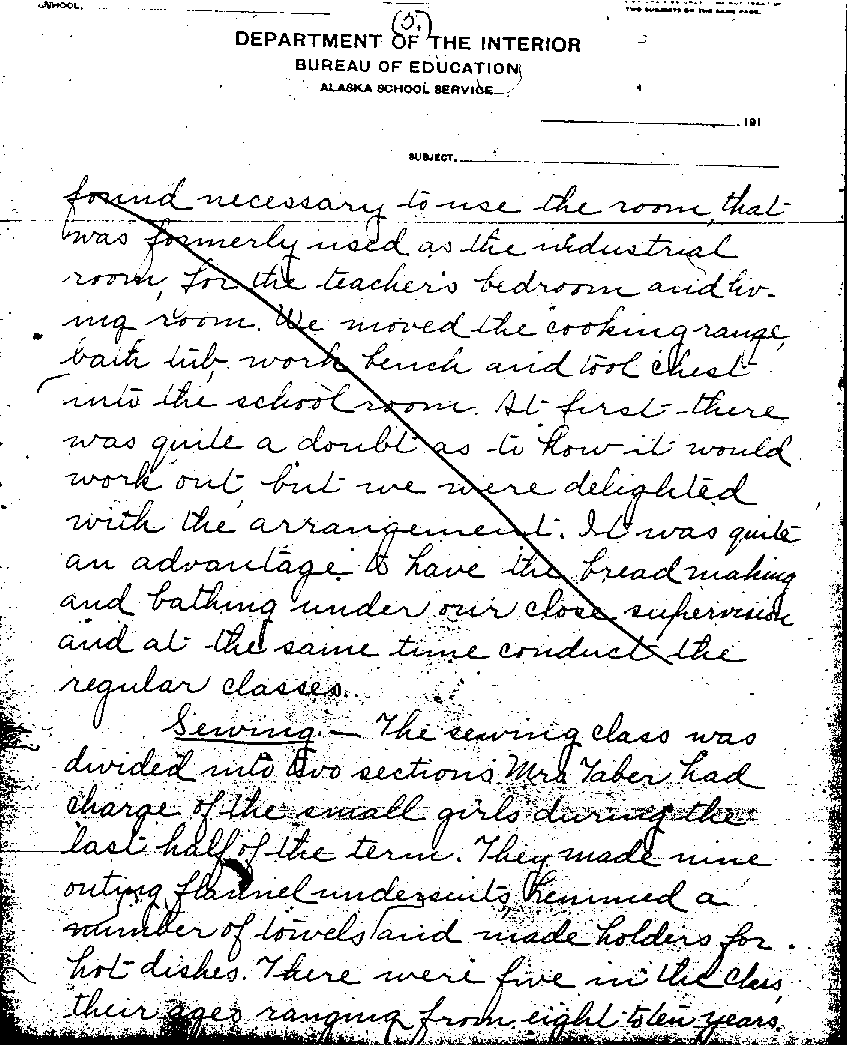 SCHOOL.
TWO SUBJECTS ON THE SAME PAGE.
(5.)
DEPARTMENT OF THE INTERIOR
BUREAU OF EDUCATION
ALASKA SCHOOL SERVICE
, 191
SUBJECT.
found necessary to use the room, that
was formerly used as the industrial
room, for the teacher's bedroom and liv-
ing room. We moved the cooking range,
bath tub, work bench and tool chest
into the school room. At first there
was quite a doubt as to how it would
work out, but we were delighted
with the arrangement. It was quite
an advantage to have the bread making
and bathing under our close supervision
and at the same time conduct the
regular classes.
Sewing. — The sewing class was
divided into two sections. Mrs Taber had
charge of the small girls during the
last half of the term. They made nine
outing flannel undersuits, hemmed a
number of towels and made holders for
hot dishes. There were five in the class,
their ages ranging from eight to ten years.